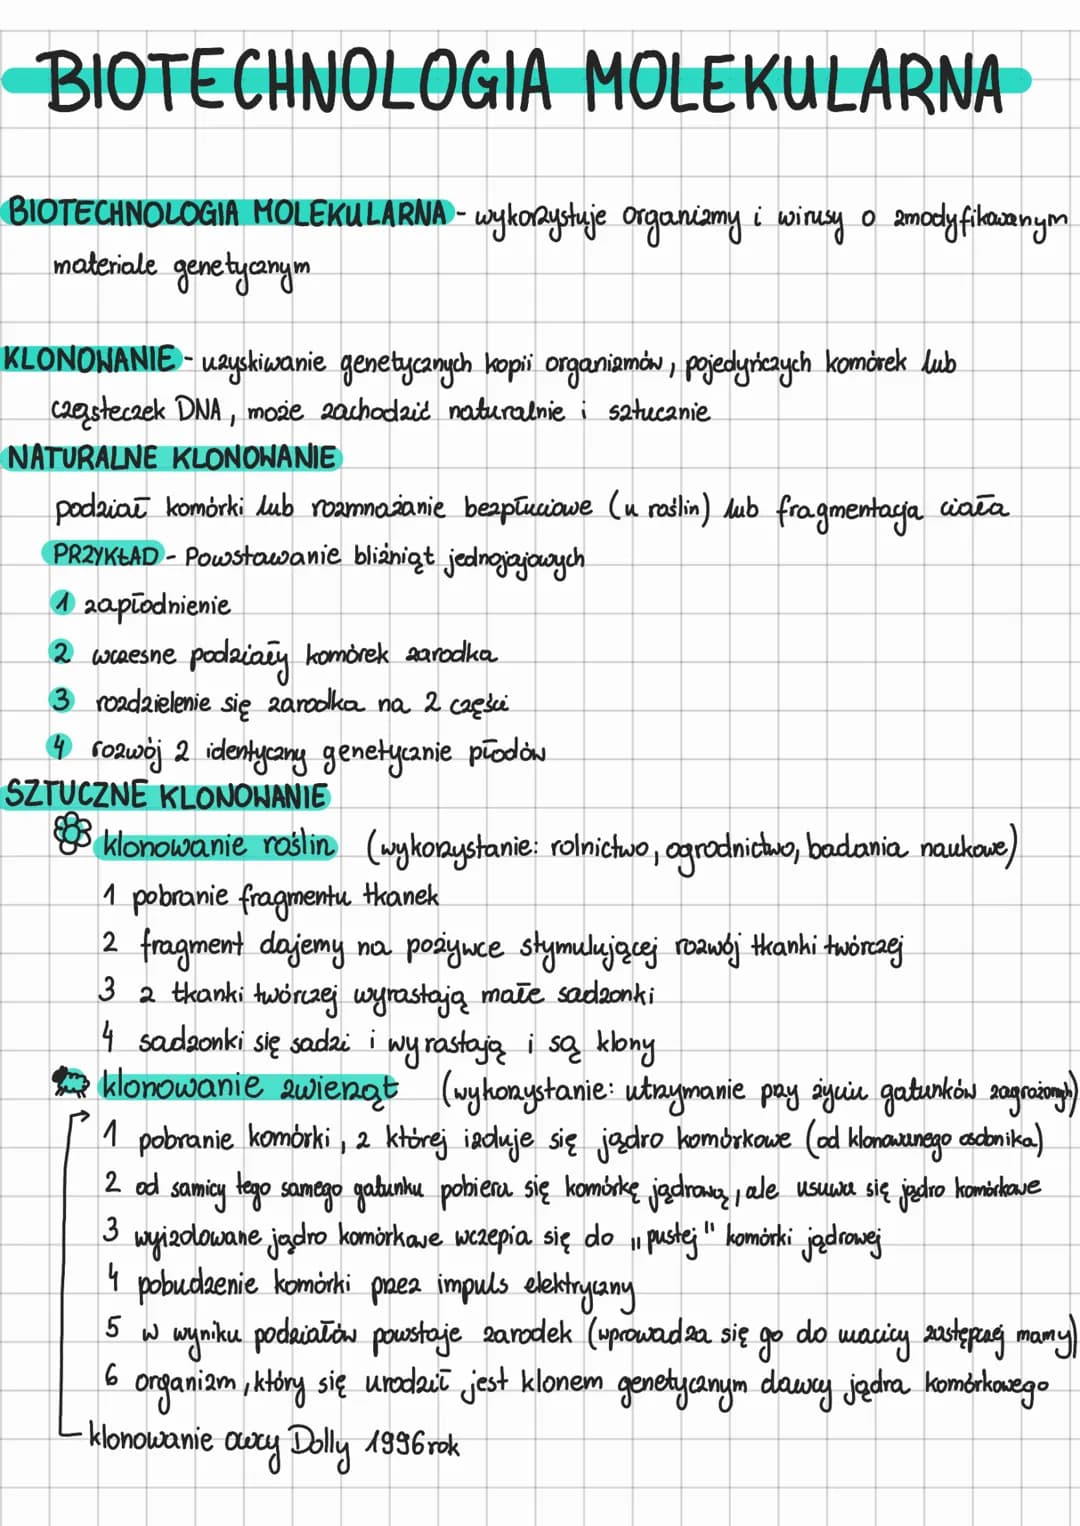 BIOTECHNOLOGIA MOLEKULARNA
BIOTECHNOLOGIA MOLEKULARNA - wykorzystuje organizmy i wirusy o zmodyfikowanym
materiale genetycznym
KLONOWANIE - uzyskiwanie genetycznych kopii organizmów, pojedyńczych komórek lub
cząsteczek DNA, może zachodzić naturalnie i sztucznie
NATURALNE KLONOWANIE
podział komórki lub rozmnażanie bezpłuciowe (u roślin) lub fragmentacja ciała
PRZYKŁAD - Powstawanie bliźniąt jednojajowych
1 zapłodnienie
2 wczesne podziały komórek zarodka
3 rozdzielenie się zarodka na 2 części
4 rozwój 2 identyczny genetycznie płodów
SZTUCZNE KLONOWANIE
klonowanie roślin (wykorzystanie: rolnictwo, ogrodnictwo, badania naukowe)
1 pobranie fragmentu tkanek
2 fragment dajemy na pożywce stymulującej rozwój tkanki twórczej
3 z tkanki twórczej wyrastają małe sadzonki
4 sadzonki się sadzi i wyrastają i są klony
klonowanie zwierząt (wykorzystanie: utrzymanie przy życiu gatunków zagrożonych)
1 pobranie komórki, z której izoluje się jądro komórkowe (od klonowanego osobnika)
2 od samicy tego samego gatunku pobiera się komórkę jądrową, ale usuwa się jądro komórkowe
3 wyizolowane jądro komórkowe wczepia się do „pustej" komórki jądrowej
4 pobudzenie komórki przez impuls elektryczny
5 w wyniku podziałów powstaje zarodek (wprowadza się go do macicy zastępczej mamy)
6 organizm, który się urodził jest klonem genetycznym dawcy jądra komórkowego
klonowanie owcy Dolly 1996 rok